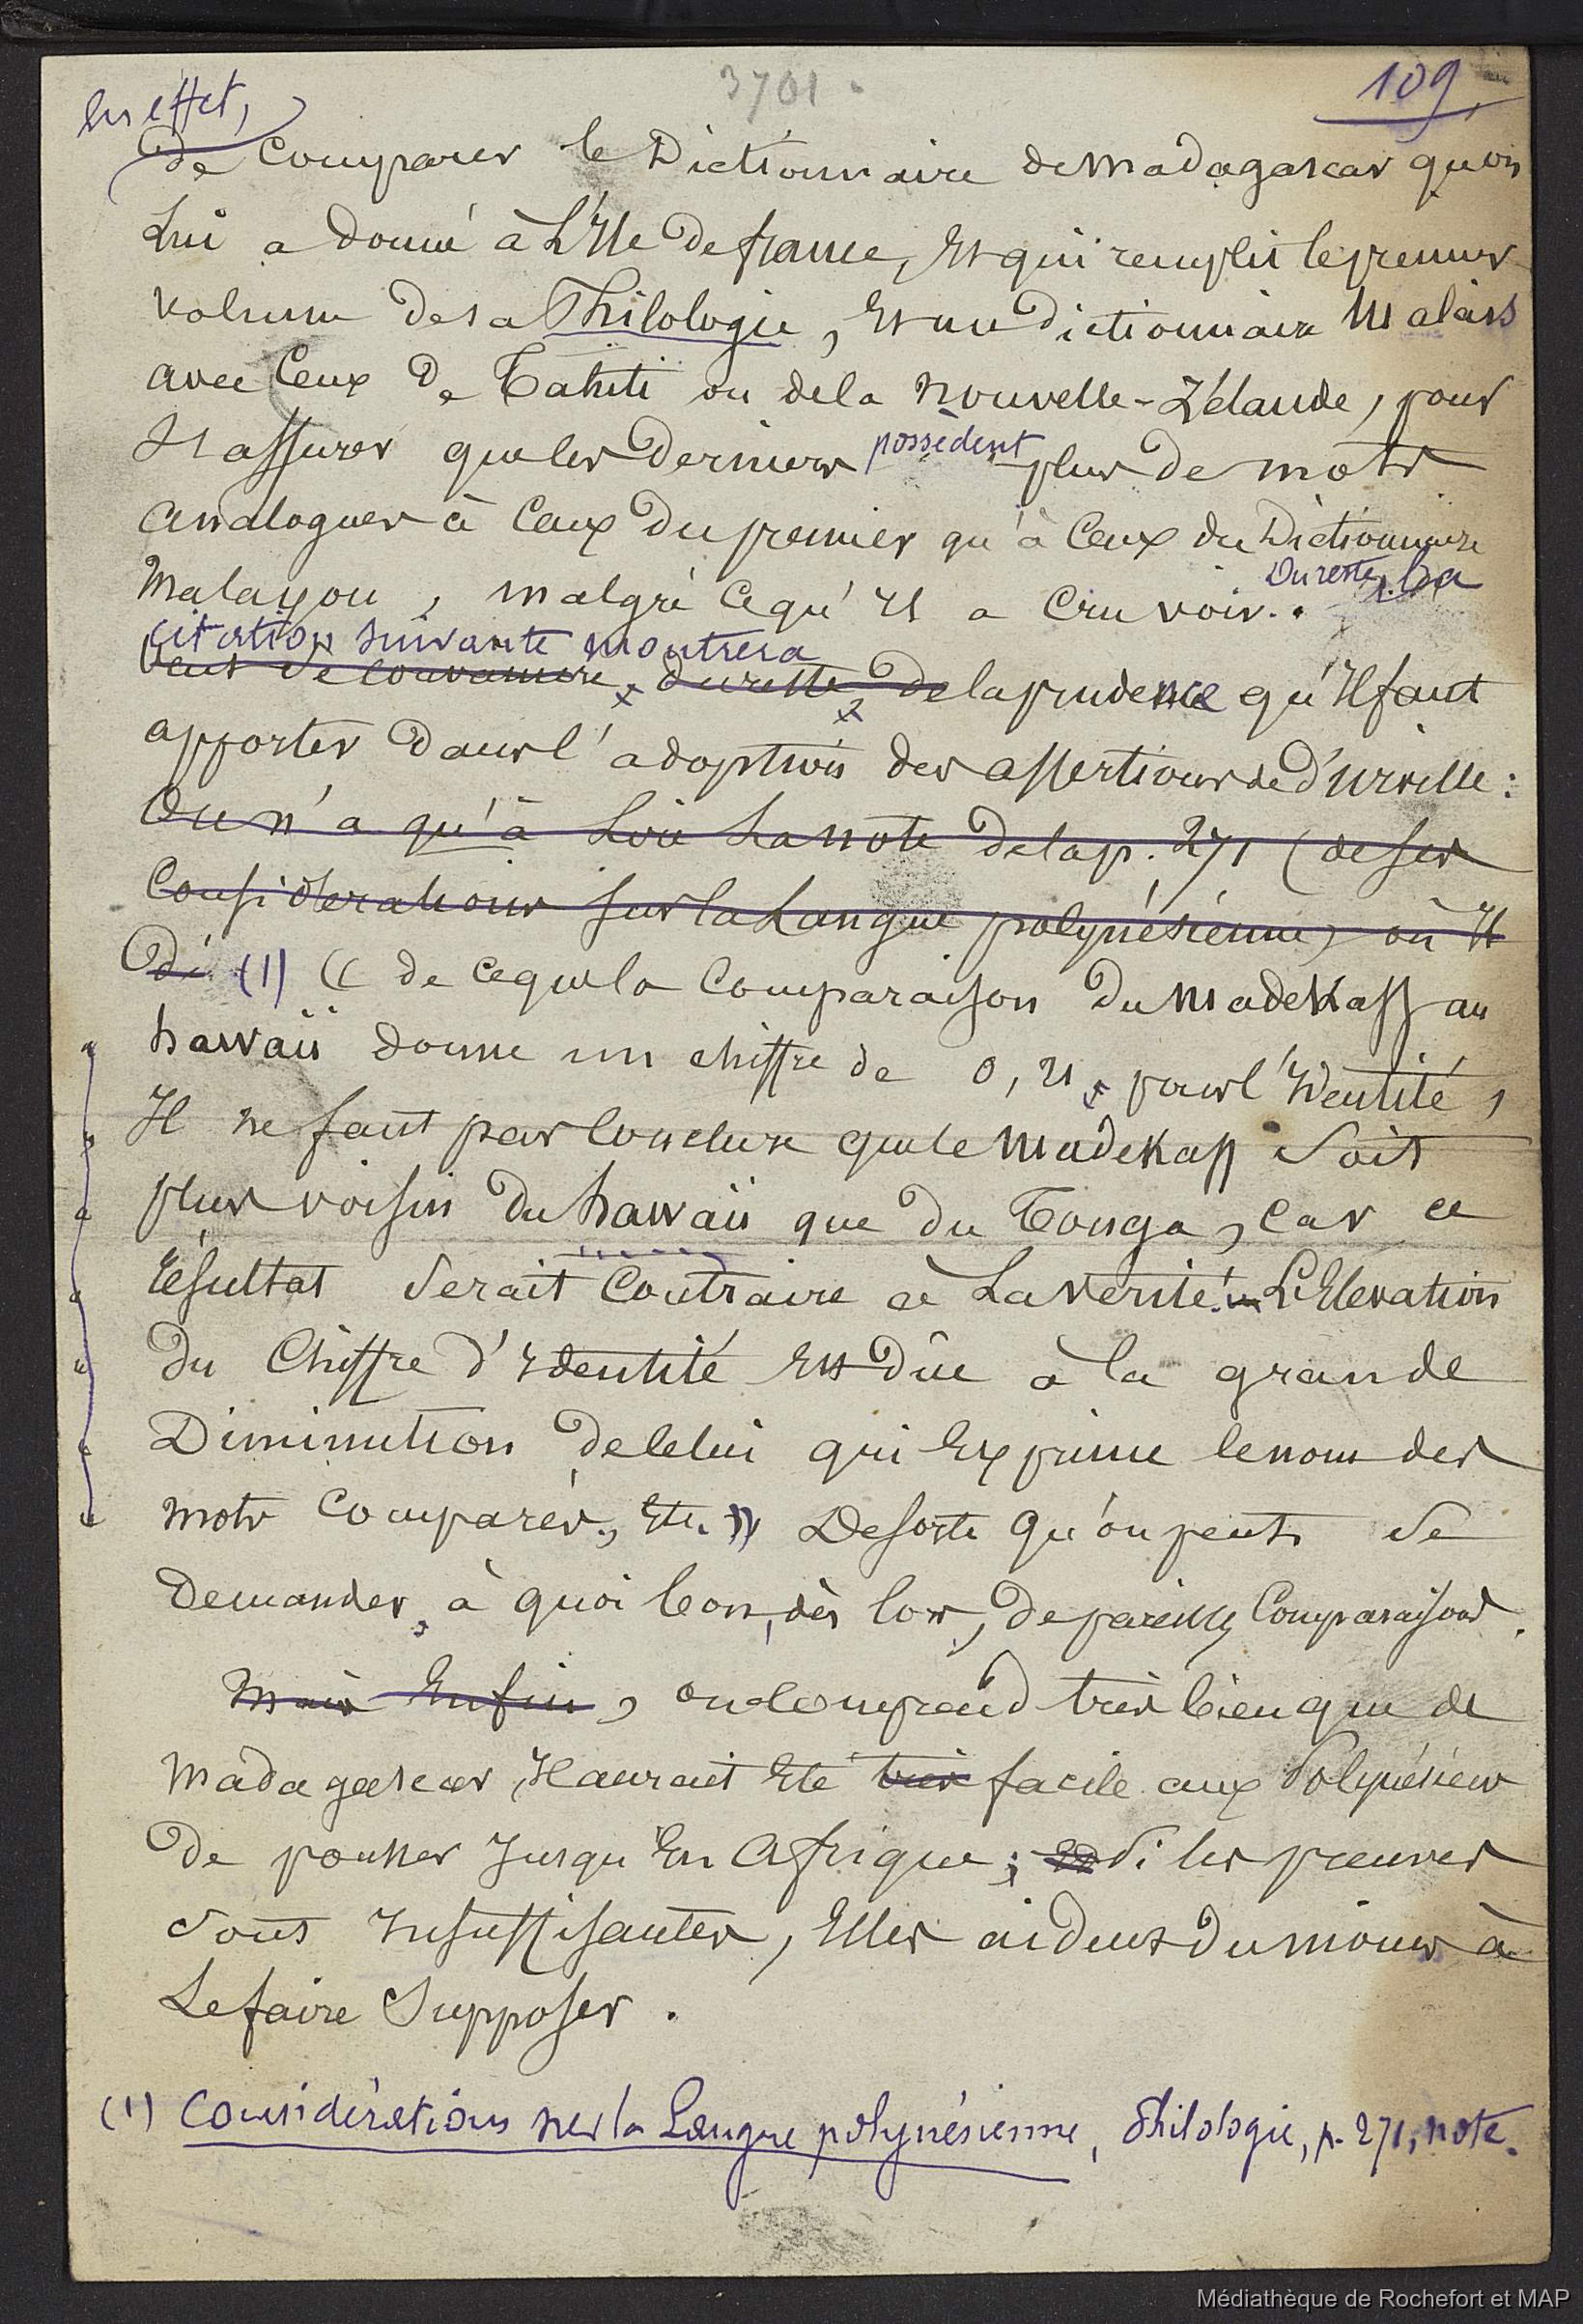 3701.
109
en effet,
de comparer le Dictionnaire de Madagascar qu'on
lui a donné à l'Ile de france, et qui remplit le premier
volume de sa Philologie, et un dictionnaire Malais
avec ceux de Tahiti ou de la Nouvelle-Zélande, pour
s'assurer que les derniers possèdent plus de mots
analogues à ceux du premier qu'à ceux du Dictionnaire
Malayou, malgré ce qu'il a cru voir. Du reste, la
citation suivante montrera
du reste de la prudence qu'il faut
apporter dans l'adoption des assertions de d'urville:
On n'a qu'à lire la note de la p. 271 (de ses
Considérations sur la Langue polynésienne) où il
dé (1) « de ce que la comparaison du Madekass au
hawaii donne un chiffre de 0,21, pour l'Identité,
Il ne faut pas conclure que le Madekass soit
plus voisin du hawaii que du Tonga, car ce
résultat serait contraire à la vérité. L'Elevation
du chiffre d'Identité est dûe à la grande
Diminution de celui qui exprime le nom des
mots comparés, etc. » De sorte qu'on peut se
demander, à quoi bon, dès lors, de pareilles comparaisons.
Mais Enfin, on comprend très bien que de
Madagascar, Il aurait été très facile aux Polynésiens
de pousser jusqu'en Afrique; si les preuves
sont insuffisantes, elles aident du moins à
le faire supposer.
(1) Considérations sur la Langue polynésienne, Philologie, p. 271, note.
Médiathèque de Rochefort et MAP